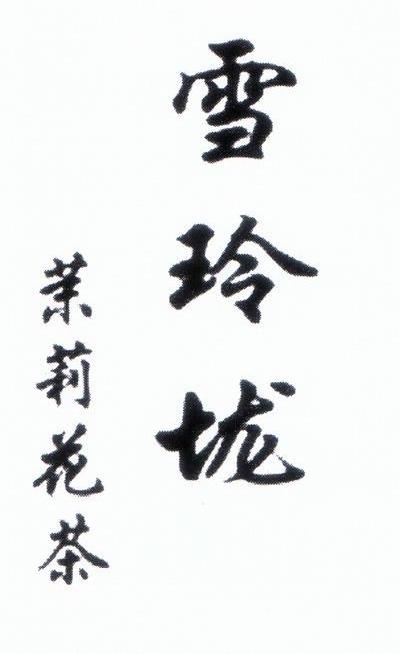 雪玲垅
茉莉花茶